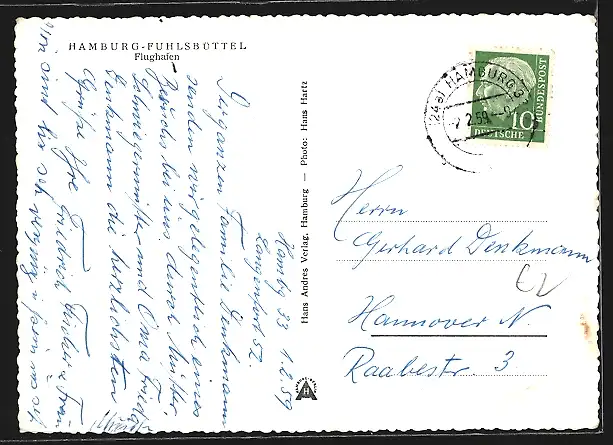 HAMBURG-FUHLSBÜTTEL
Flughafen
Hans Andres Verlag, Hamburg — Photo: Hans Hartz
(24a) HAMBURG 33
2.2.59
DEUTSCHE
BUNDESPOST
10
Hambg 33 1.2.59
Langenfort 52.
Der ganzen Familie Denkmann
senden wir gelegentlich eines
Besuchs bei uns durch Mutter,
Schwiegermutter und Oma Frieda
Denkmann die herzlichsten
Grüße Ihre Friedrich u. Frau
Wir sind hier sehr
Herrn
Gerhard Denkmann
Hannover N.
Raabestr. 3